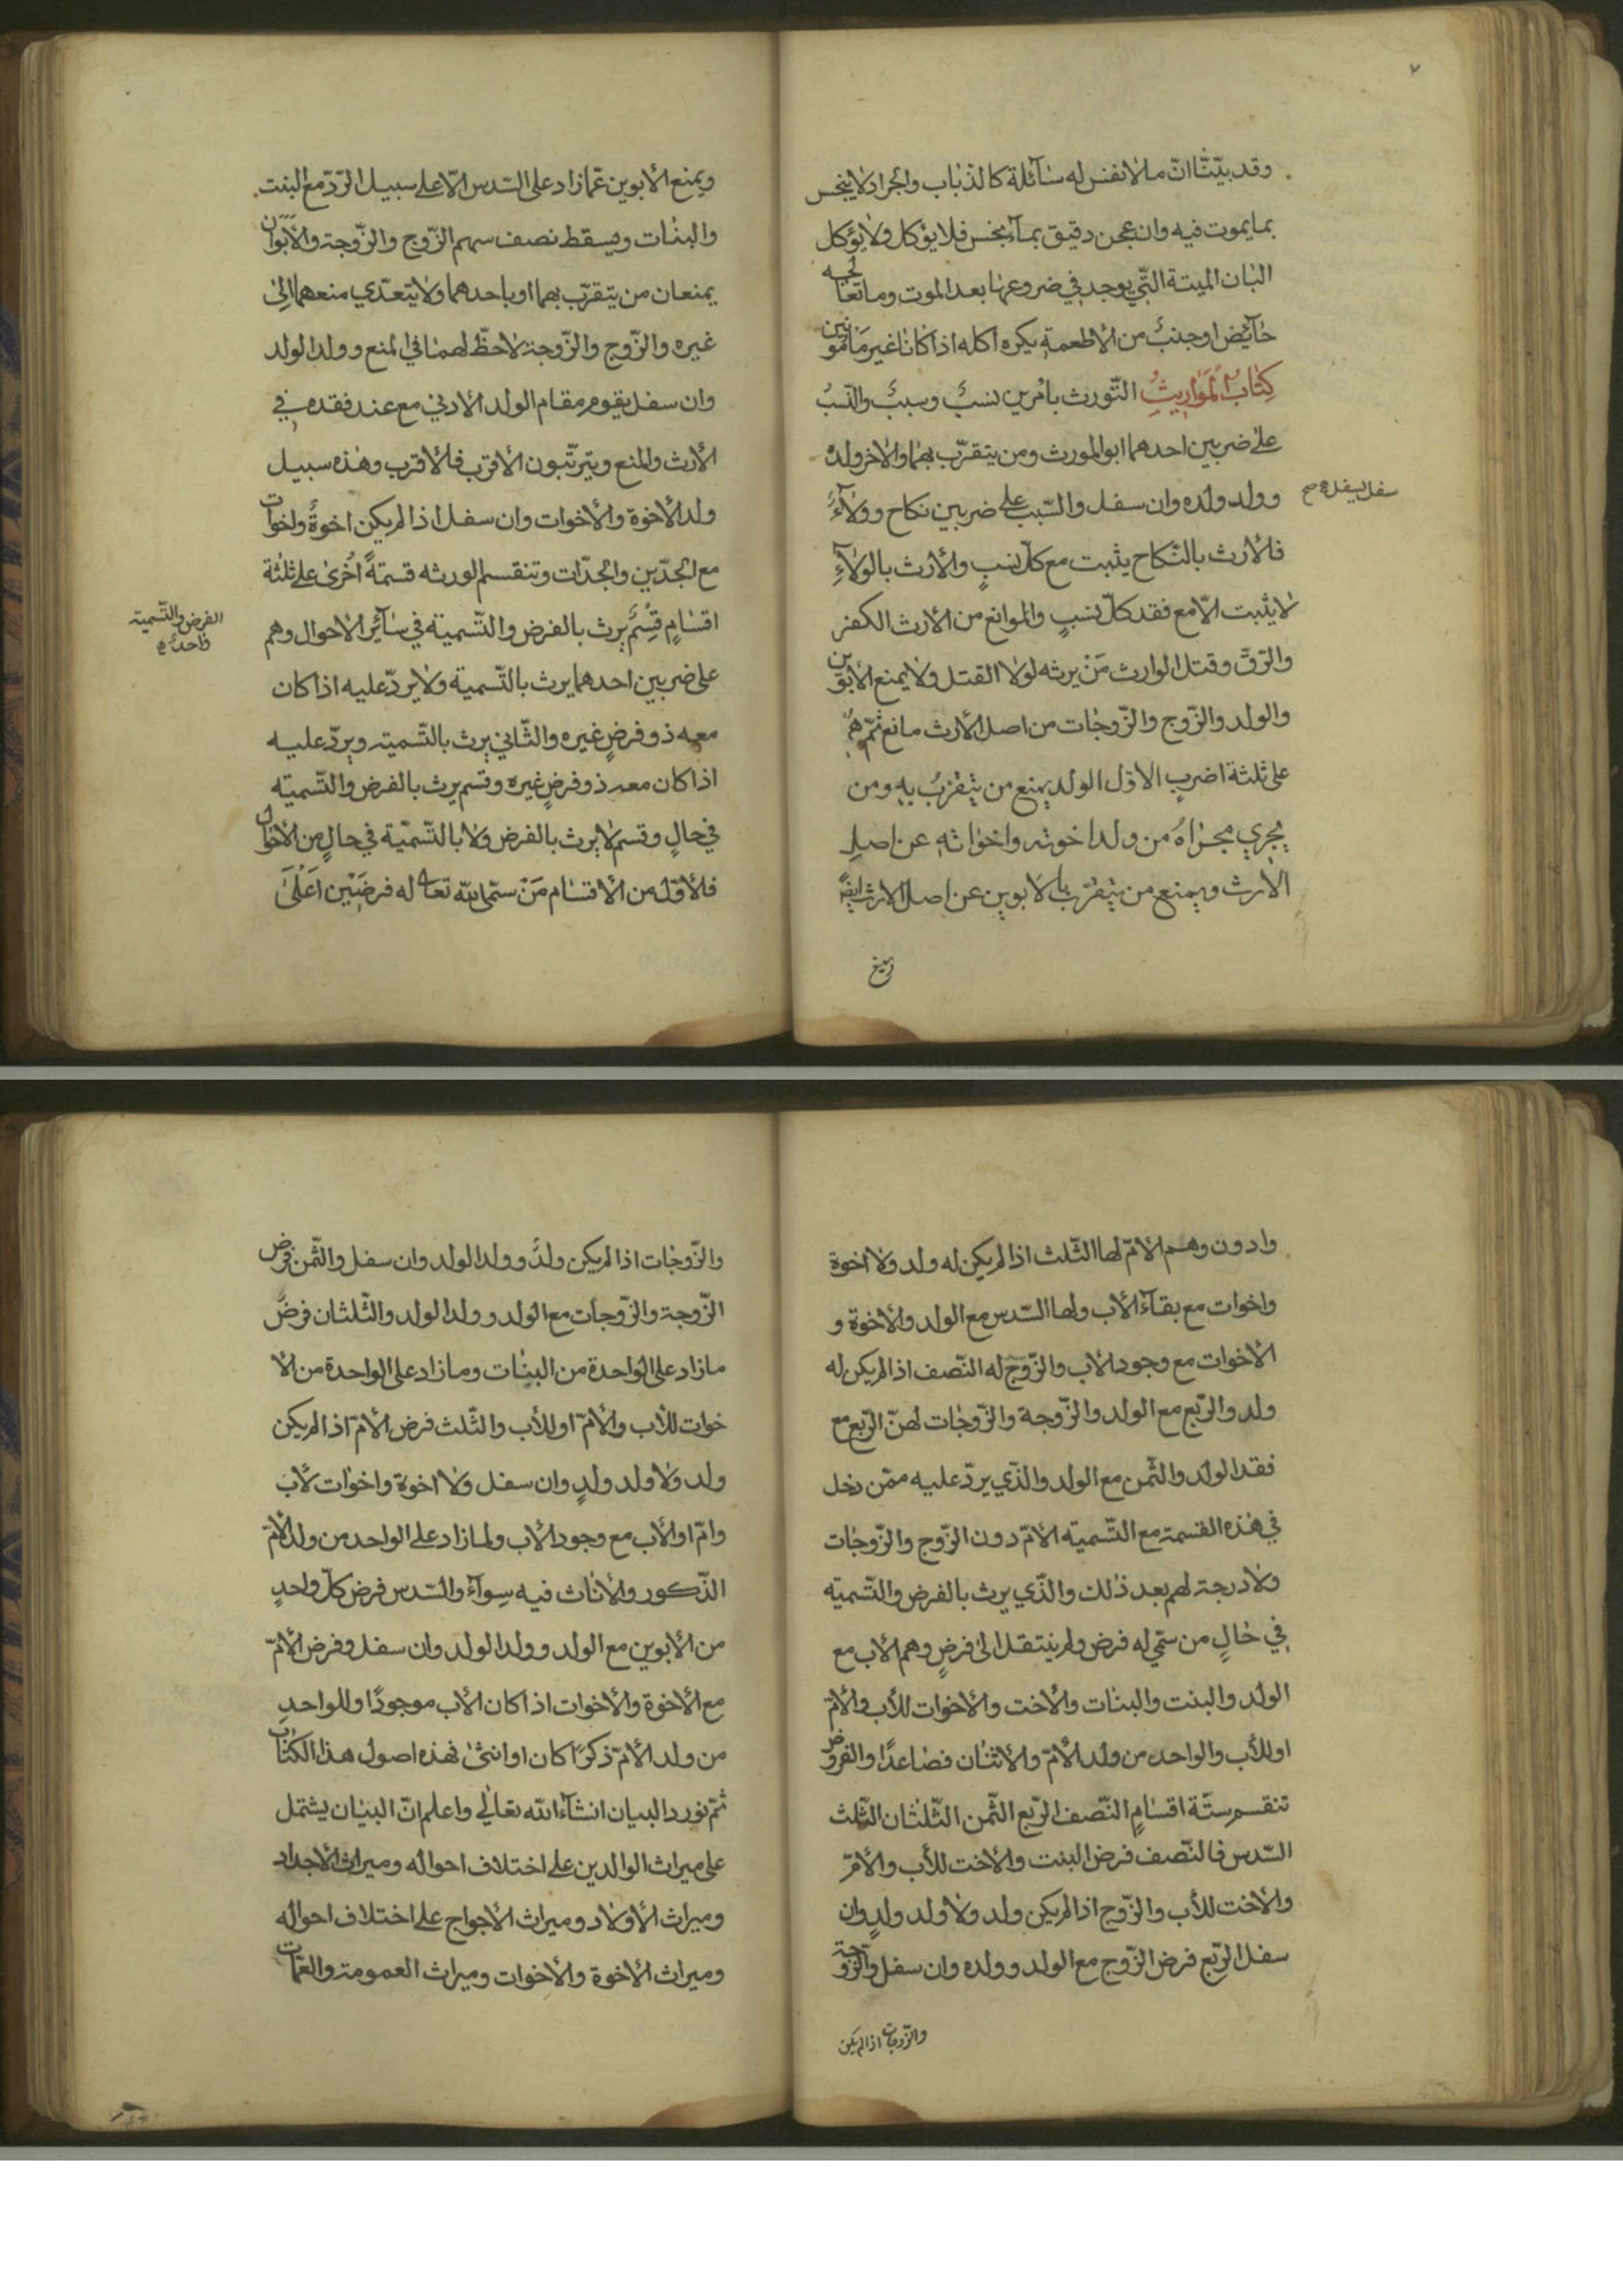 ٢
وقد بيّنّا انّ ما لا نفس له سآئلة كالذباب والجراد لا ينجس
بما يموت فيه وان عجن دقيق بمآء نجس فلا يؤكل ولا يؤكل
البان الميتة التّي يوجد في ضروعها بعد الموت وما تعالجه
حآئض او جنبٌ من الأطعمة يكره اكله اذا كانا غير مأمونين
كتاب المواريث التّورث بأمرين نسبٌ وسببٌ والنّسبُ
على ضربين احدهما ابو المورث ومن يتقرّب بهما والاخر ولده
وولد ولده وان سفل والسّبب على ضربين نكاح وولآءٌ
سفل يسفل صح
فالأرث بالنّكاح يثبت مع كلّ نسبٍ والأرث بالولآءِ
لا يثبت الّا مع فقد كلّ نسبٍ والموانع من الأرث الكفر
والرّقّ وقتل الوارث مَنْ يرثه لولا القتل ولا يمنع الأبوين
والولد والزّوج والزّوجات من اصل الأرث مانع ثمّ هُم
على ثلثة اضربٍ الاوّل الولد يمنع من يتقرّبُ به ومن
يجري مجراهُ من ولد اخوته واخواته عن اصل
الارث ويمنع من يتقرّب بالأبوين عن اصل الارث ايضًا
ويمنع
ويمنع الأبوين عمّا زاد على السّدس الّا على سبيل الرّدّ مع البنت
والبنات ويسقط نصف سهم الزّوج والزّوجة والأبوان
يمنعان من يتقرّب بهما او باحدهما ولا يتعدّي منعهما الى
غيره والزّوج والزّوجة لاحظّ لهما في المنع وولد الولد
وان سفل يقوم مقام الولد الأدني مع عند فقده في
الأرث والمنع ويترتّبون الأقرب فالأقرب وهذه سبيل
ولد الأخوة والأخوات وان سفل اذا لم يكن اخوةٌ واخوات
مع الجدّين والجدّات وتنقسم الورثه قسمةً اُخرى على ثلثة
اقسامٍ قِسْمٌ يرث بالفرض والتّسمية في سآئر الاحوال وهم
الفرض والتّسمية
واحدٌ
على ضربين احدهما يرث بالتّسمية ولا يردّ عليه اذا كان
معه ذو فرضٍ غيره والثّاني يرث بالتّسمية ويردّ عليه
اذا كان معه ذو فرضٍ غيره وقسم يرث بالفرض والتّسمية
في حالٍ وقسم لا يرث بالفرض ولا بالتّسمية في حالٍ من الأحوال
فالأوّل من الأقسام مَنْ سمّى اللّه تعالى له فرضَيْن اَعْلَىٰ
وادون وهم الأمّ لها الثّلث اذا لم يكن له ولد ولا اخوة
واخوات مع بقآء الأب ولها السّدس مع الولد والأخوة و
الأخوات مع وجود الأب والزّوج له النّصف اذا لم يكن له
ولد والرّبع مع الولد والزّوجة والزّوجات لهنّ الرّبع مع
فقد الولد والثّمن مع الولد والذّي يردّ عليه ممّن دخل
في هذه القسمة مع التّسمية الأمّ دون الزّوج والزّوجات
ولا درجة لهم بعد ذلك والذّي يرث بالفرض والتّسمية
في حالٍ من سمّي له فرض ولم ينتقل الى فرضٍ وهم الأب مع
الولد والبنت والبنات والأخت والأخوات للأب والأمّ
او للأب والواحد من ولد الأمّ والأثنان فصاعدًا والفروض
تنقسم ستّة اقسامٍ النّصف الرّبع الثّمن الثّلثان الثّلث
السّدس فالنّصف فرض البنت والأخت للأب والأمّ
والأخت للأب والزّوج اذا لم يكن ولد ولا ولد ولدٍ وان
سفل الرّبع فرض الزّوج مع الولد وولده وان سفل والزّوجة
والزّوجات اذا لم يكن
والزّوجات اذا لم يكن ولدٌ وولد الولد وان سفل والثّمن فرض
الزّوجة والزّوجات مع الولد وولد الولد والثّلثان فرضُ
ما زاد على الواحدة من البنات وما زاد على الواحدة من الأ
خوات للأب والأمّ او للأب والثّلث فرض الأمّ اذا لم يكن
ولد ولا ولد ولدٍ وان سفل ولا اخوة واخوات لأب
وامّ او الأب مع وجود الأب ولما زاد على الواحد من ولد الأمّ
الذّكور والأناث فيه سوآءٌ والسّدس فرض كلّ واحدٍ
من الأبوين مع الولد وولد الولد وان سفل وفرض الأمّ
مع الأخوة والأخوات اذا كان الأب موجودًا وللواحد
من ولد الأمّ ذكرًا كان او انثى فهذه اصول هذا الكتاب
ثمّ نورد البيان انشآء اللّه تعالى واعلم انّ البيان يشتمل
على ميراث الوالدين على اختلاف احواله وميراث الأجداد
وميراث الأولاد وميراث الأجواج على اختلاف احواله
وميراث الأخوة والأخوات وميراث العمومة والعمّات